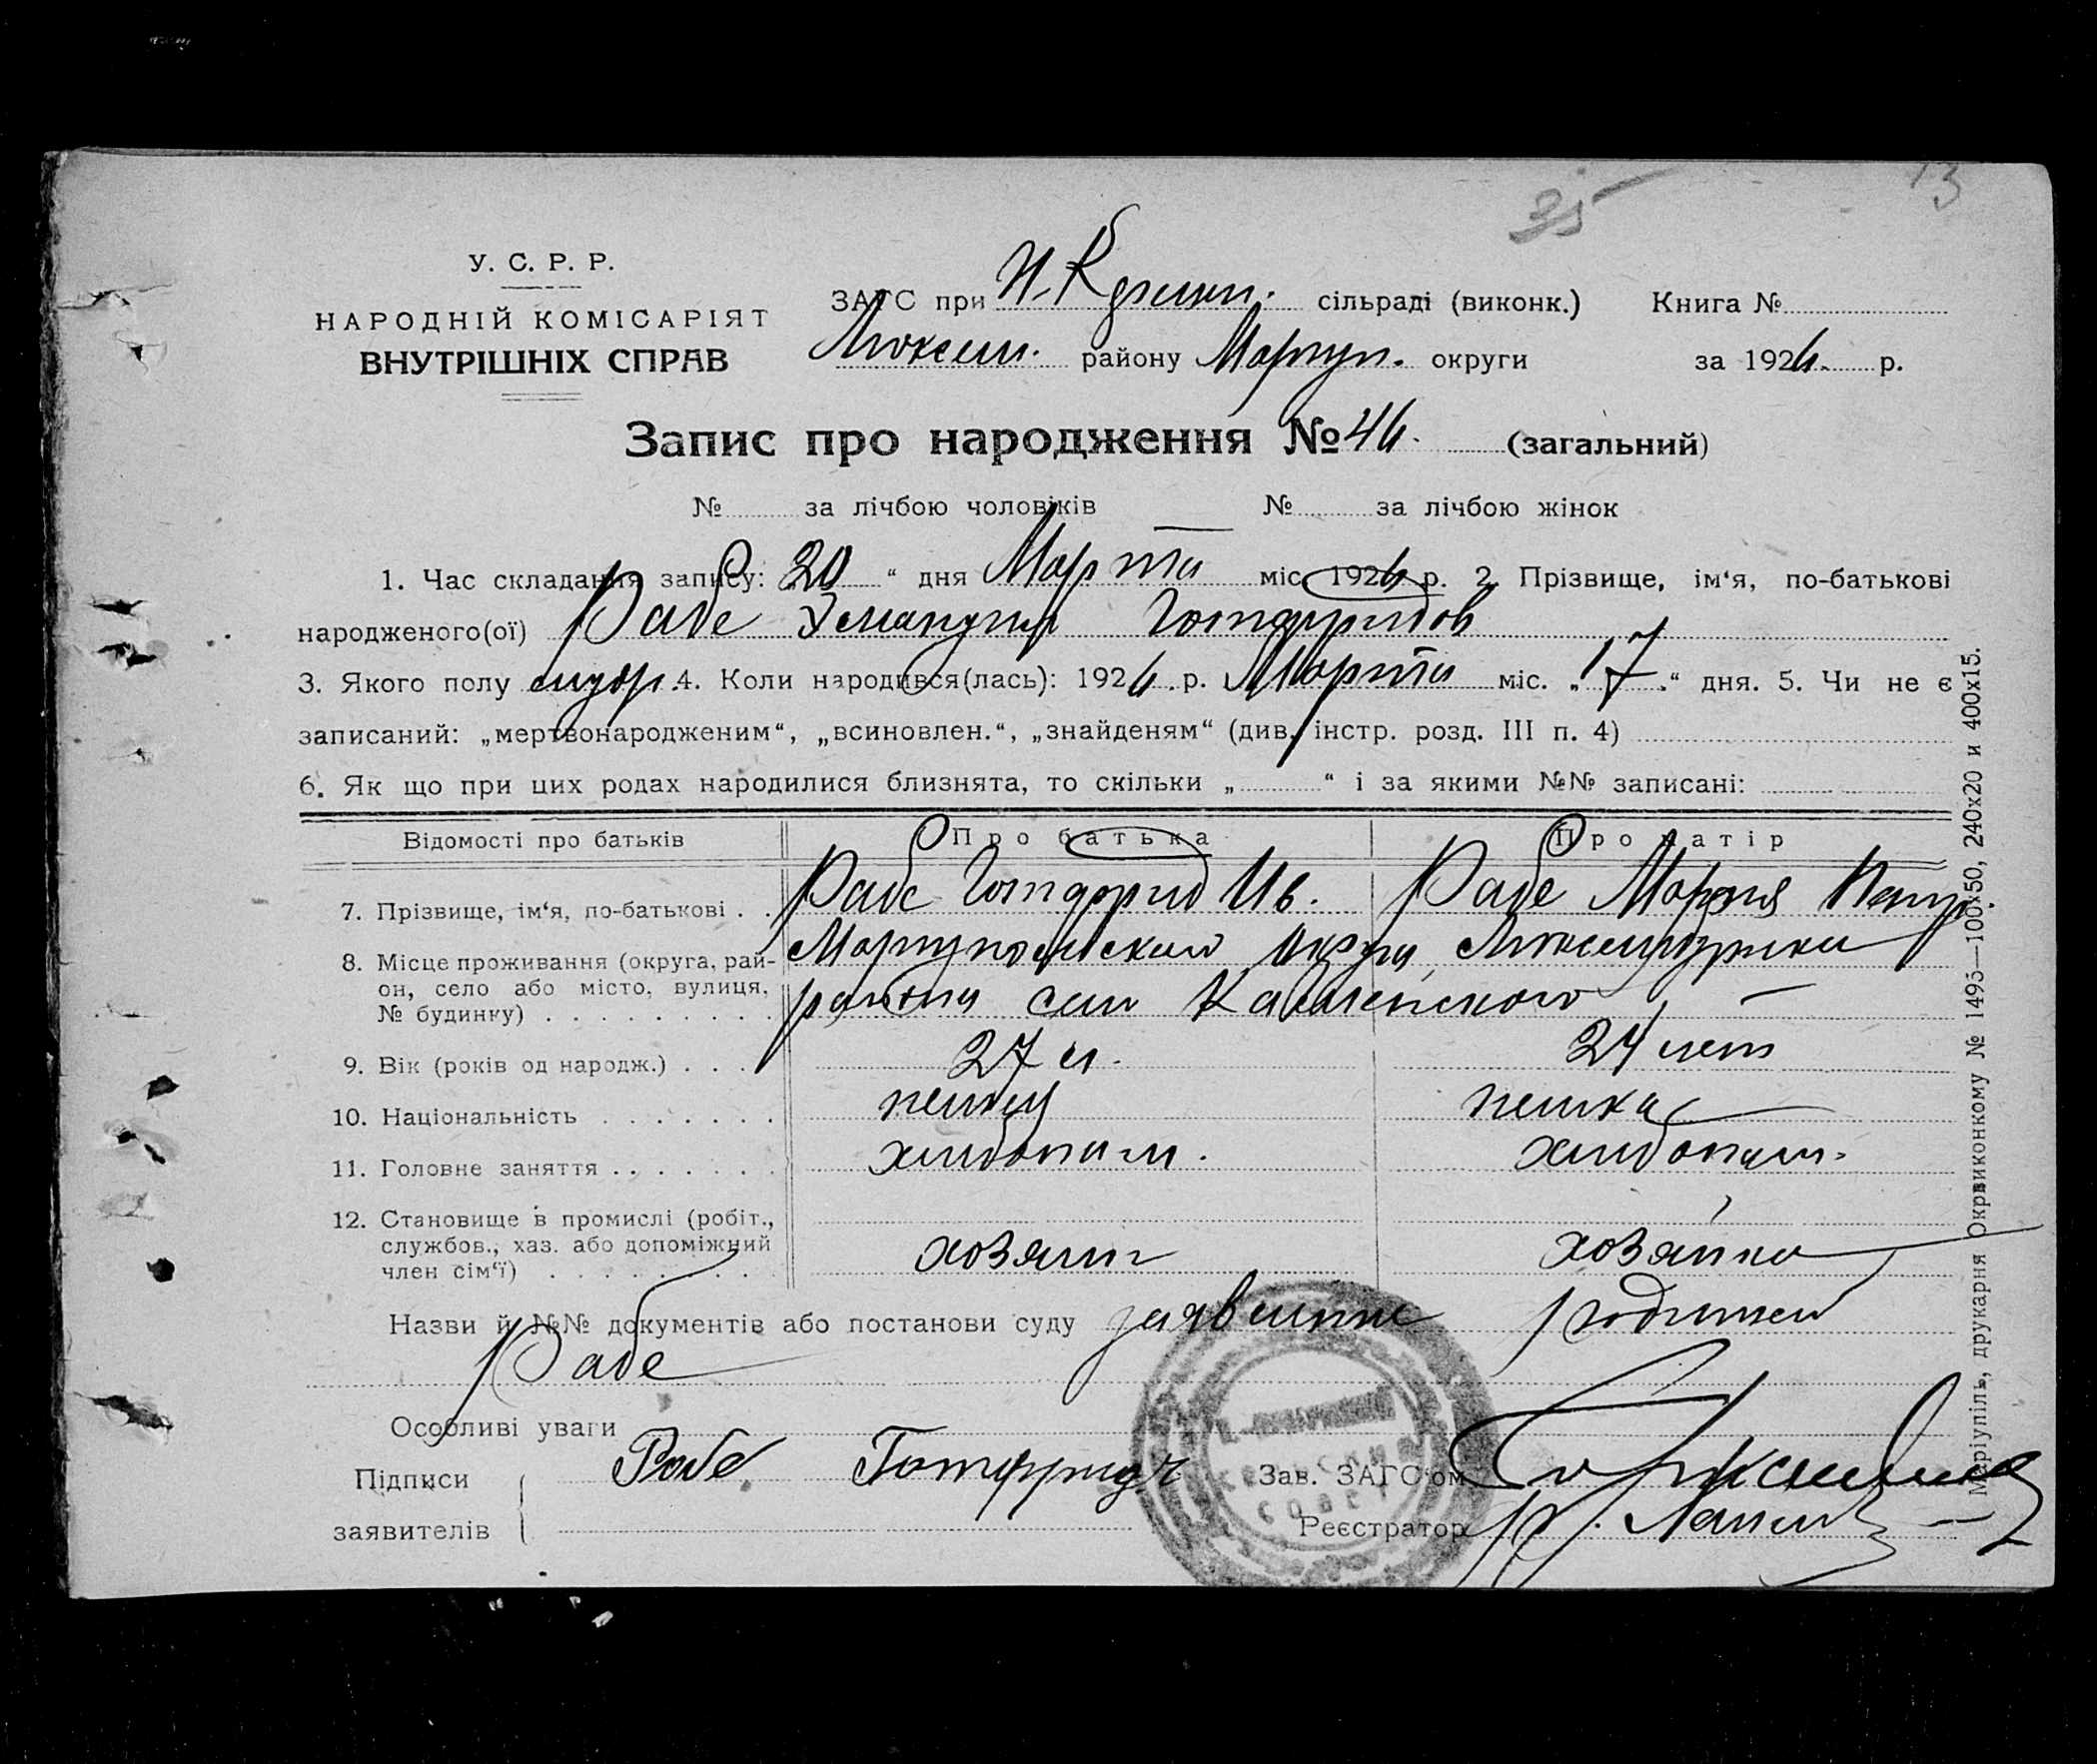 35
13
У. С. Р. Р.
НАРОДНІЙ КОМІСАРІЯТ
ВНУТРІШНІХ СПРАВ
ЗАГС при сільраді (виконк.) Книга №
Люксем. району Мариуп. округи за 1926. р.
Запис про народження № 46. (загальний)
№ за лічбою чоловіків № за лічбою жінок
1. Час складання запису: 20 “ дня Марта міс. 1926 р. 2. Прізвище, ім‘я, по-батькові
народженого(ої) Рабе Эмануил Готфридов
3. Якого полу мужс. 4. Коли народився(лась): 1926 р. Марта міс. „17“ дня. 5. Чи не є
записаний: „мертвонародженим“, „всиновлен.“, „знайденям“ (див. інстр. розд. III п. 4)
6. Як що при цих родах народилися близнята, то скільки „ “ і за якими №№ записані:
Відомості про батьків Про батька Про матір
7. Прізвище, ім‘я, по-батькові . . Рабе Готфрид Ив. Рабе Мария Петр.
8. Місце проживання (округа, рай- Мариупольского Округа, Люксембургски
он, село або місто, вулиця, района села Каменского
№ будинку)
9. Вік (років од народж.) . . . 27 л. 24 лет
10. Національність немец немка
11. Головне заняття хлебопаш. хлебопаш.
12. Становище в промислі (робіт.,
службов., хаз. або допоміжний хозяин хозяйка
член сім‘ї)
Назви й №№ документів або постанови суду заявление родителей
Рабе
Особливі уваги
Підписи Рабе Готфрид Зав. ЗАГС‘ом
заявителів Реєстратор
Маріупіль, друкарня Окрвиконкому № 1493—100×50, 240х20 и 400х15.